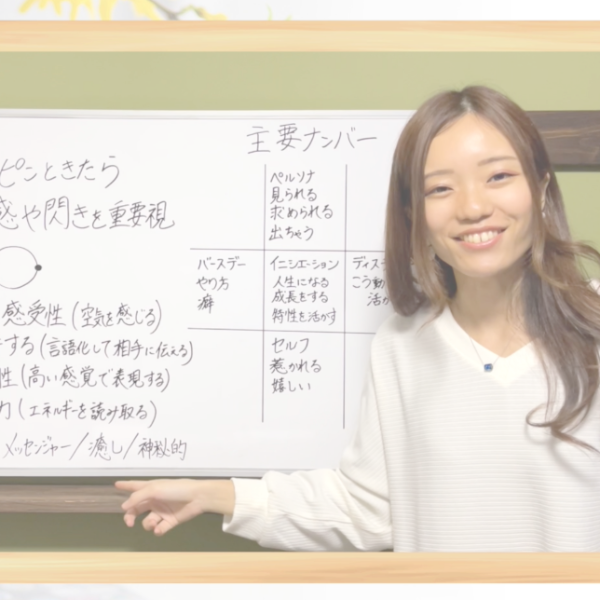 主要ナンバー
ピンときたら
感や閃きを重要視
感受性(空気を感じる)
する(言語化して相手に伝える)
性(高い感覚で表現する)
力(エネルギーを読み取る)
メッセンジャー/癒し/神秘的
ペルソナ
見られる
求められる
出ちゃう
バースデー
やり方
癖
イニシエーション
人生になる
成長をする
特性を活かす
ディス
こう動
活か
セルフ
惹かれる
嬉しい